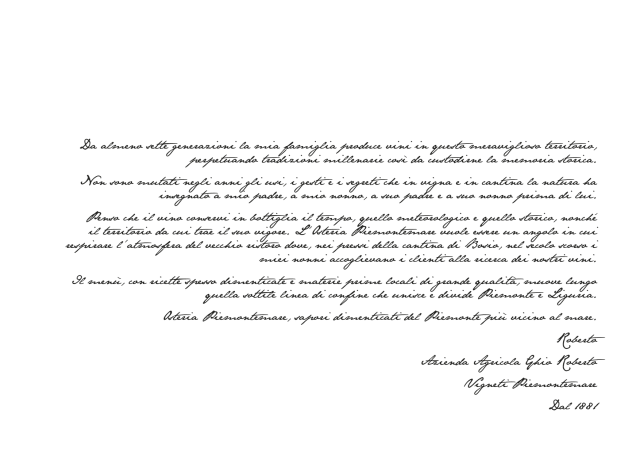 Da almeno sette generazioni la mia famiglia produce vini in questo meraviglioso territorio,
perpetuando tradizioni millenarie così da custodirne la memoria storica.
Non sono mutati negli anni gli usi, i gesti e i segreti che in vigna e in cantina la natura ha
insegnato a mio padre, a mio nonno, a suo padre e a suo nonno prima di lui.
Penso che il vino conservi in bottiglia il tempo, quello meteorologico e quello storico, nonché
il territorio da cui trae il suo vigore. L'Osteria Piemontemare vuole essere un angolo in cui
respirare l'atmosfera del vecchio ristoro dove, nei pressi della cantina di Bosio, nel secolo scorso i
miei nonni accoglievano i clienti alla ricerca dei nostri vini.
Il menù, con ricette spesso dimenticate e materie prime locali di grande qualità, muove lungo
quella sottile linea di confine che unisce e divide Piemonte e Liguria.
Osteria Piemontemare, sapori dimenticati del Piemonte più vicino al mare.
Roberto
Azienda Agricola Ghio Roberto
Vigneti Piemontemare
Dal 1881